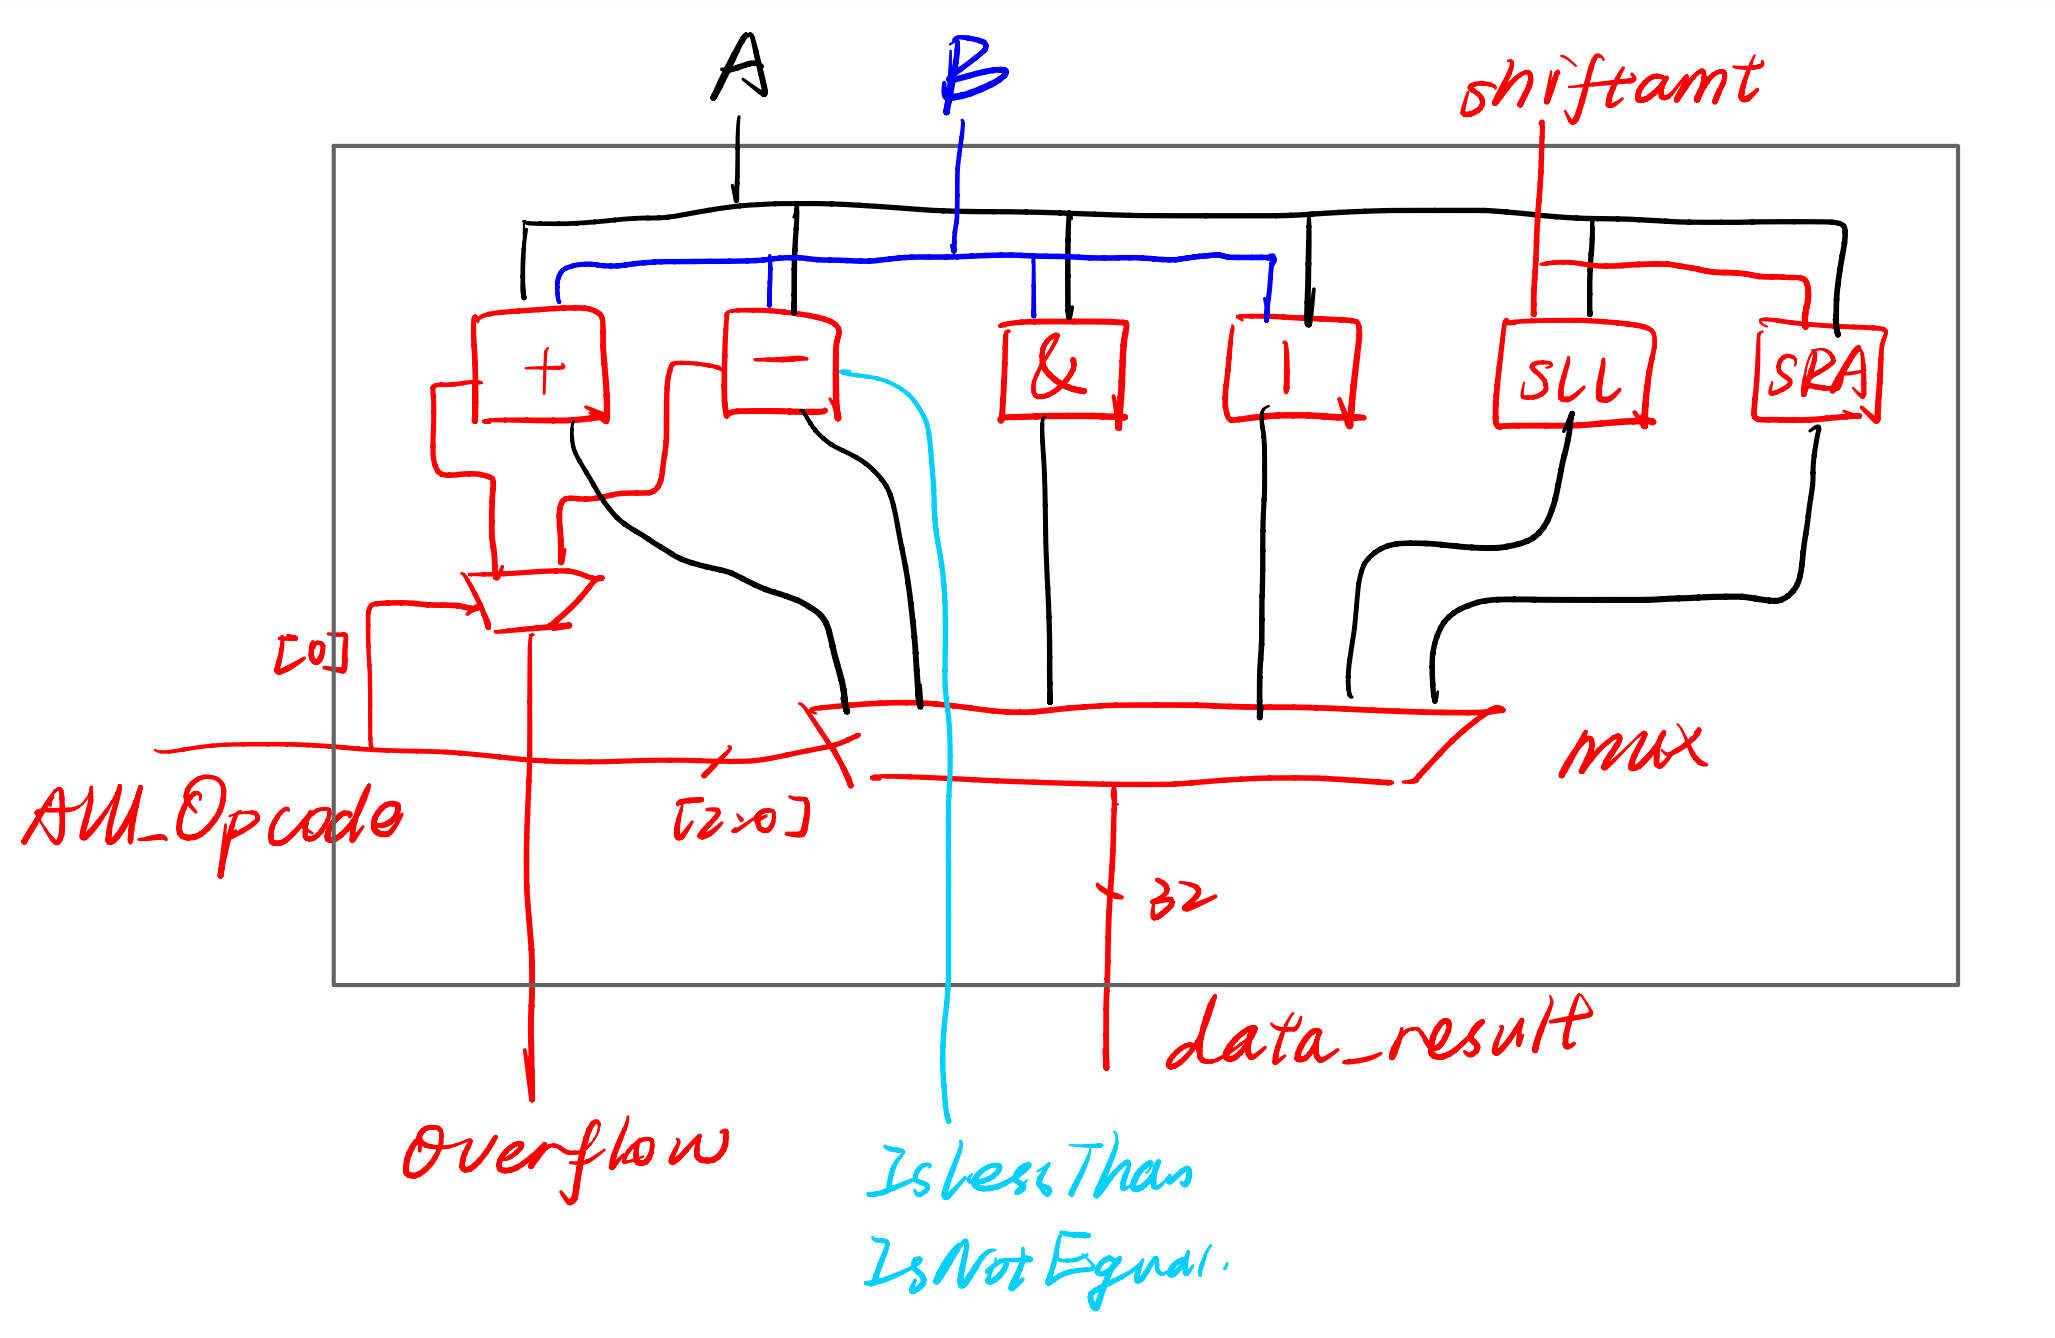 A
B
shiftamt
+
−
&
|
SLL
SRA
[0]
mux
ALU_Opcode
[2:0]
32
data_result
Overflow
IsLessThan
IsNotEqual.